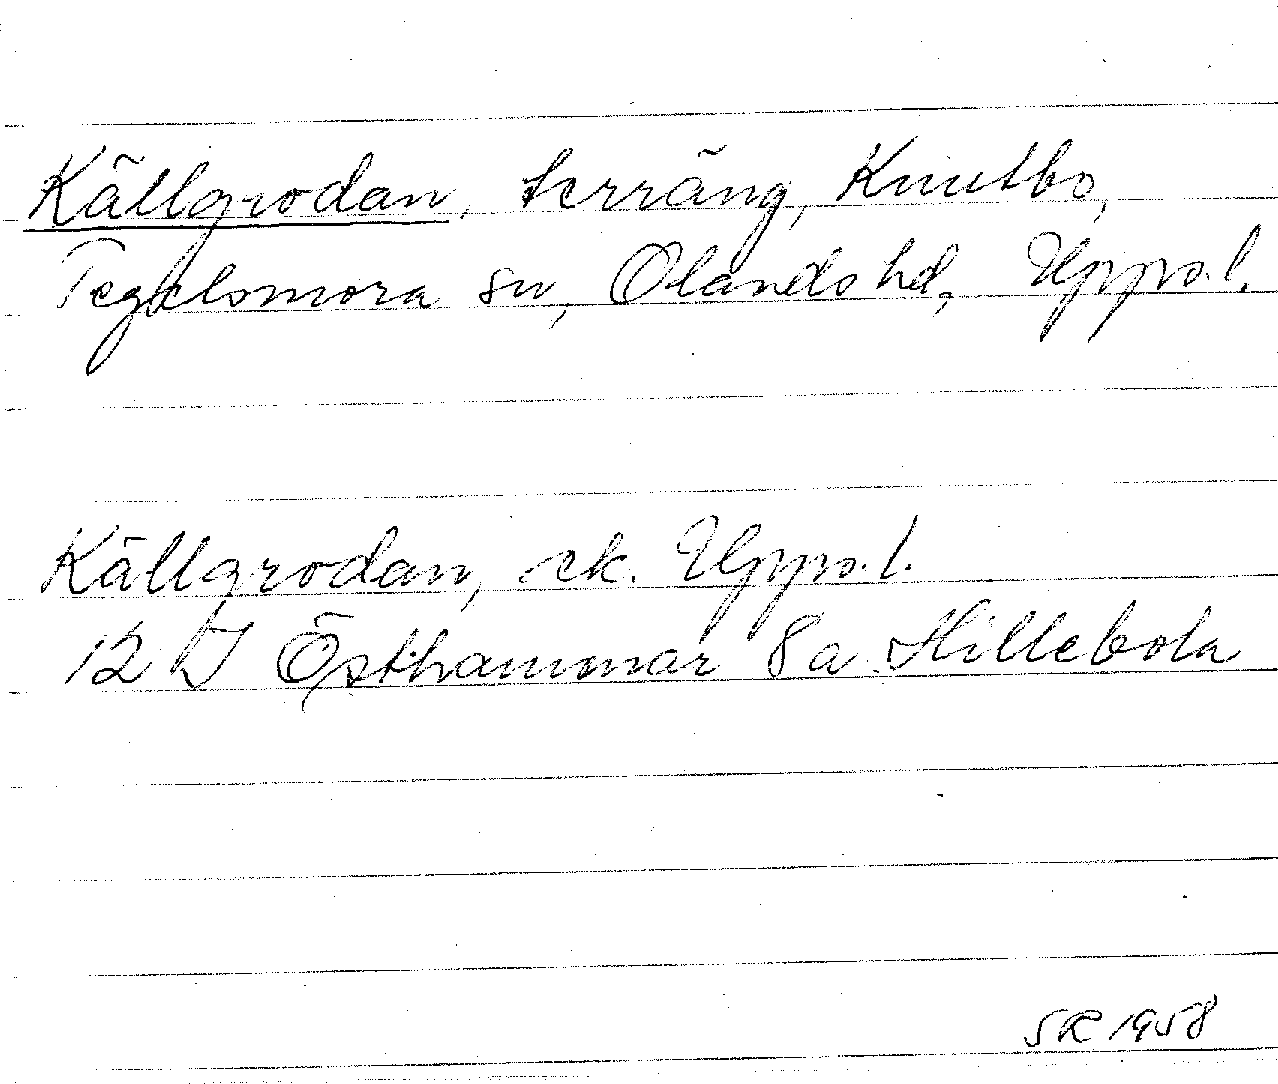 Källgrodan, terräng, Knutbo,
Tegelsmora sn, Olands hd, Upps.l.
Källgrodan, ek. Upps.l.
12 I Östhammar 8a Hillebola
SR 1958